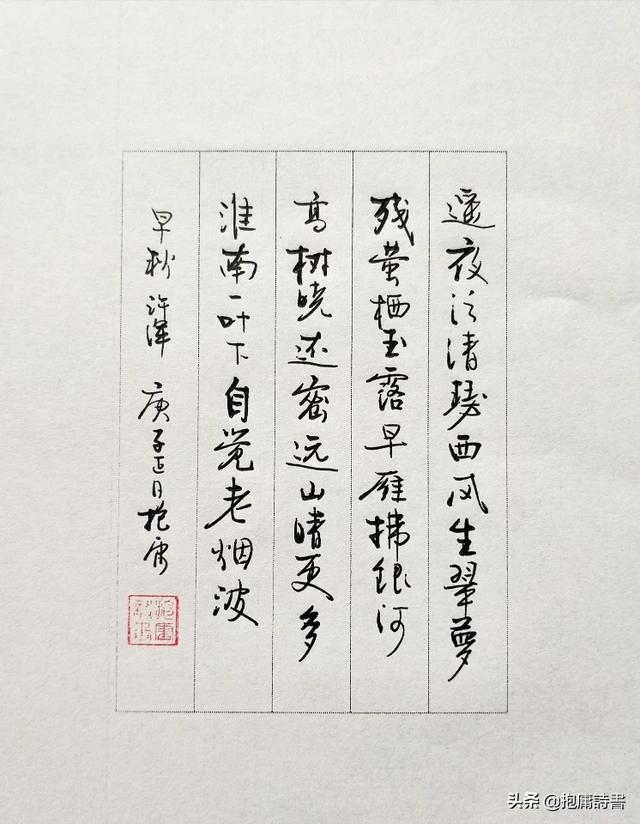 遥夜泛清瑟西风生翠萝
残萤栖玉露早雁拂银河
高树晓还密远山晴更多
淮南一叶下自觉老烟波
早秋 许浑 庚子正月抱庸
头条 @抱庸詩書